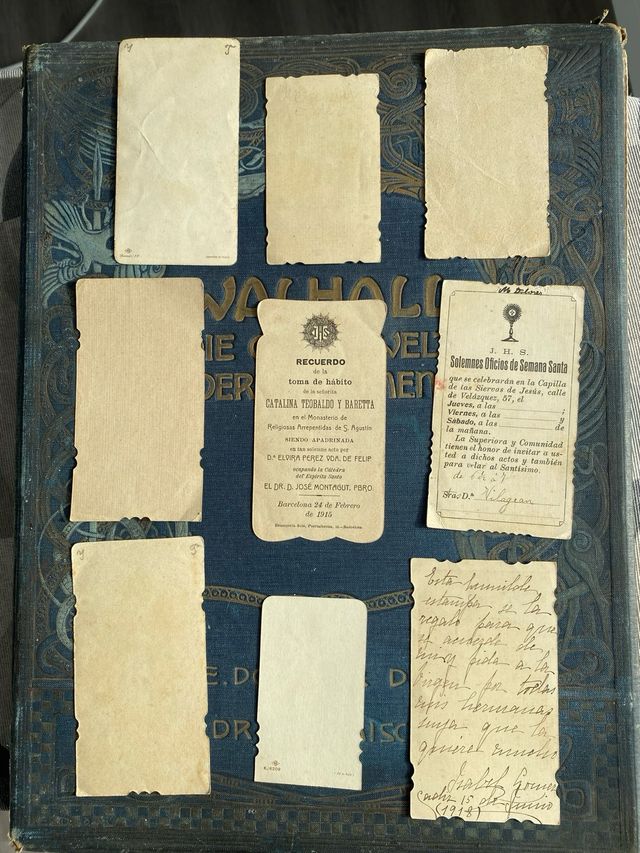 WALHALL
RECUERDO
de la
toma de hábito
de la señorita
CATALINA TEOBALDO Y BARETTA
en el Monasterio de
Religiosas Arrepentidas de S. Agustín
SIENDO APADRINADA
en tan solemne acto por
D.ª ELVIRA PEREZ VDA. DE FELIP
ocupando la Cátedra
del Espíritu Santo
EL DR. D. JOSÉ MONTAGUT, PBRO.
Barcelona 24 de Febrero
de 1915
J. H. S.
Solemnes Oficios de Semana Santa
que se celebrarán en la Capilla
de las Siervas de Jesús, calle
de Velázquez, 57, el
Jueves, a las ;
Viernes, a las y
Sábado, a las de
la mañana.
La Superiora y Comunidad
tienen el honor de invitar a us-
ted a dichos actos y también
para velar al Santísimo.
de 6 a 7
Sras D.ª
Esta humilde
estampa se la
regalo para que
se acuerde de
mi y pida a la
Virgen por todas
sus hermanas
suya que la
quiere mucho
Isabel Gomez
Cadiz 15 de Junio
(1918)